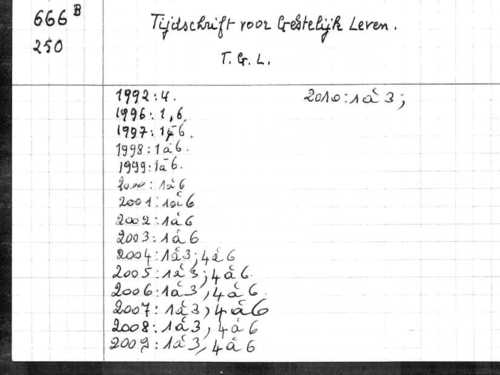 666 B
250
Tijdschrift voor Geestelijk Leven.
T. G. L.
1992: 4.
1996: 1, 6.
1997: 1à6.
1998: 1à6.
1999: 1à6.
2000: 1à6
2001: 1à6
2002: 1à6
2003: 1à6
2004: 1à3; 4à6
2005: 1à3; 4à6
2006: 1à3, 4à6
2007: 1à3, 4à6
2008: 1à3, 4à6
2009: 1à3, 4à6
2010: 1à3;